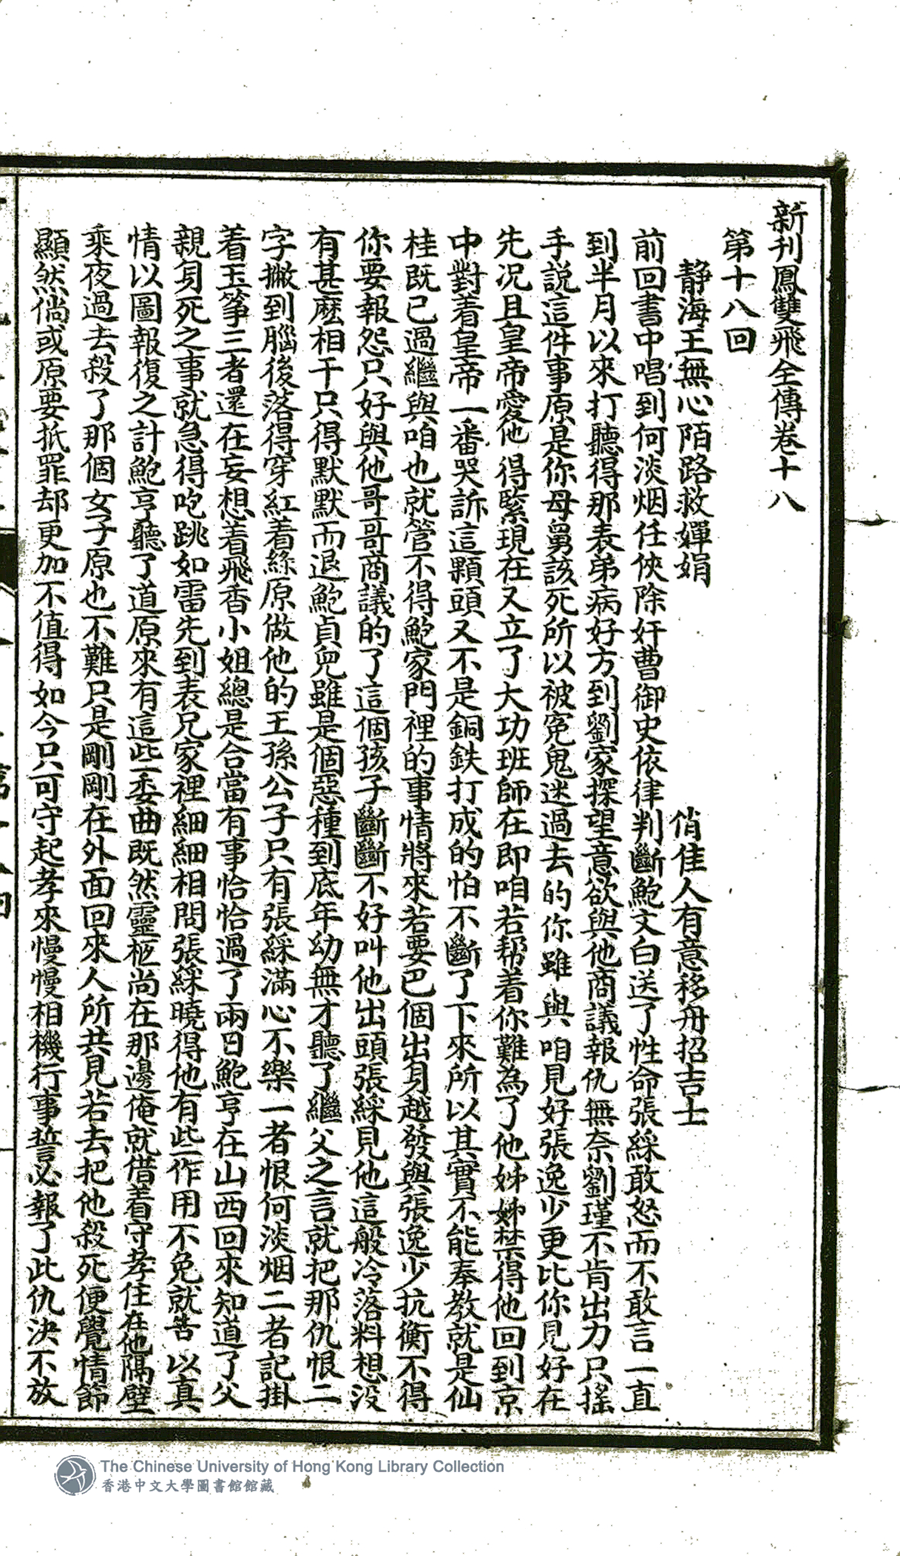 新刊鳳雙飛全傳卷十八
第十八回
靜海王無心陌路救嬋娟　俏佳人有意移舟招吉士
前回書中唱到何淡烟任俠除奸曹御史依律判斷鮑文白送了性命張綵敢怒而不敢言一直
到半月以來打聽得那表弟病好方到劉家探望意欲與他商議報仇無奈劉瑾不肯出力只搖
手説這件事原是你母舅該死所以被冤鬼迷過去的你雖與咱見好張逸少更比你見好在
先况且皇帝愛他得緊現在又立了大功班師在即咱若帮着你難為了他姊姊焚得他回到京
中對着皇帝一番哭訴這顆頭又不是銅鉄打成的怕不斷了下來所以其實不能奉教就是仙
桂既已過繼與咱也就管不得鮑家門裡的事情將來若要巴個出身越發與張逸少抗衡不得
你要報怨只好與他哥哥商議的了這個孩子斷斷不好叫他出頭張綵見他這般冷落料想没
有甚麽相干只得默默而退鮑貞兒雖是個惡種到底年幼無才聽了繼父之言就把那仇恨二
字撇到腦後落得穿紅着綠原做他的王孫公子只有張綵滿心不樂一者恨何淡烟二者記掛
着玉箏三者還在妄想着飛香小姐總是合當有事恰恰過了兩日鮑亨在山西回來知道了父
親身死之事就急得咆跳如雷先到表兄家裡細細相問張綵曉得他有些作用不免就告以真
情以圖報復之計鮑亨聽了道原來有這些委曲既然靈柩尚在那邊俺就借着守孝住在他隔壁
乘夜過去殺了那個女子原也不難只是剛剛在外面回來人所共見若去把他殺死便覺情節
顯然倘或原要抵罪却更加不值得如今只可守起孝來慢慢相機行事誓必報了此仇決不放
The Chinese University of Hong Kong Library Collection
香港中文大學圖書館館藏